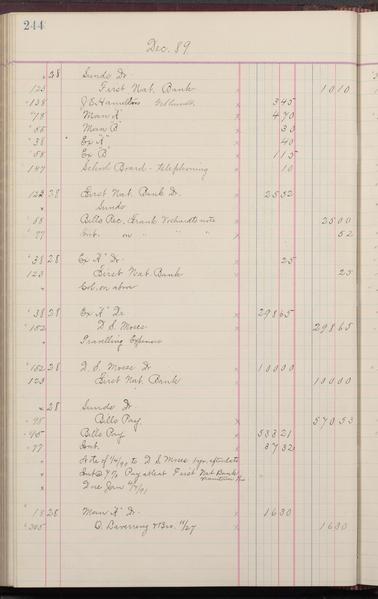 244
Dec. 89
28 Sundo Dr
123 First Nat. Bank 1010
138 J E Hamilton 345
78 Man "A" 470
55 Man "B" 30
38 Ex "A" 40
58 Ex "B" 115
147 School Board - telephoning 10
122 28 First Nat. Bank Dr. 2552
Sundo
88 Bills Rec. Frank note 2500
77 Int. on " " " 52
38 28 Ex "A" Dr 25
123 First Nat. Bank 25
Col. on above
38 28 Ex "A" Dr 29865
152 D. S. Moses 29865
Travelling Expenses
152 28 D. S. Moses Dr 10000
123 First Nat. Bank 10000
28 Sundo Dr
95 Bills Pay. 57053
95 Bills Pay 53321
77 Int. 3732
Note of to D. S. Moses after date
Int @ 7% Pay able at First Nat Bank
Due Jan
18 28 Man "A" Dr 1630
205 O. & Bro. 11/27 1630